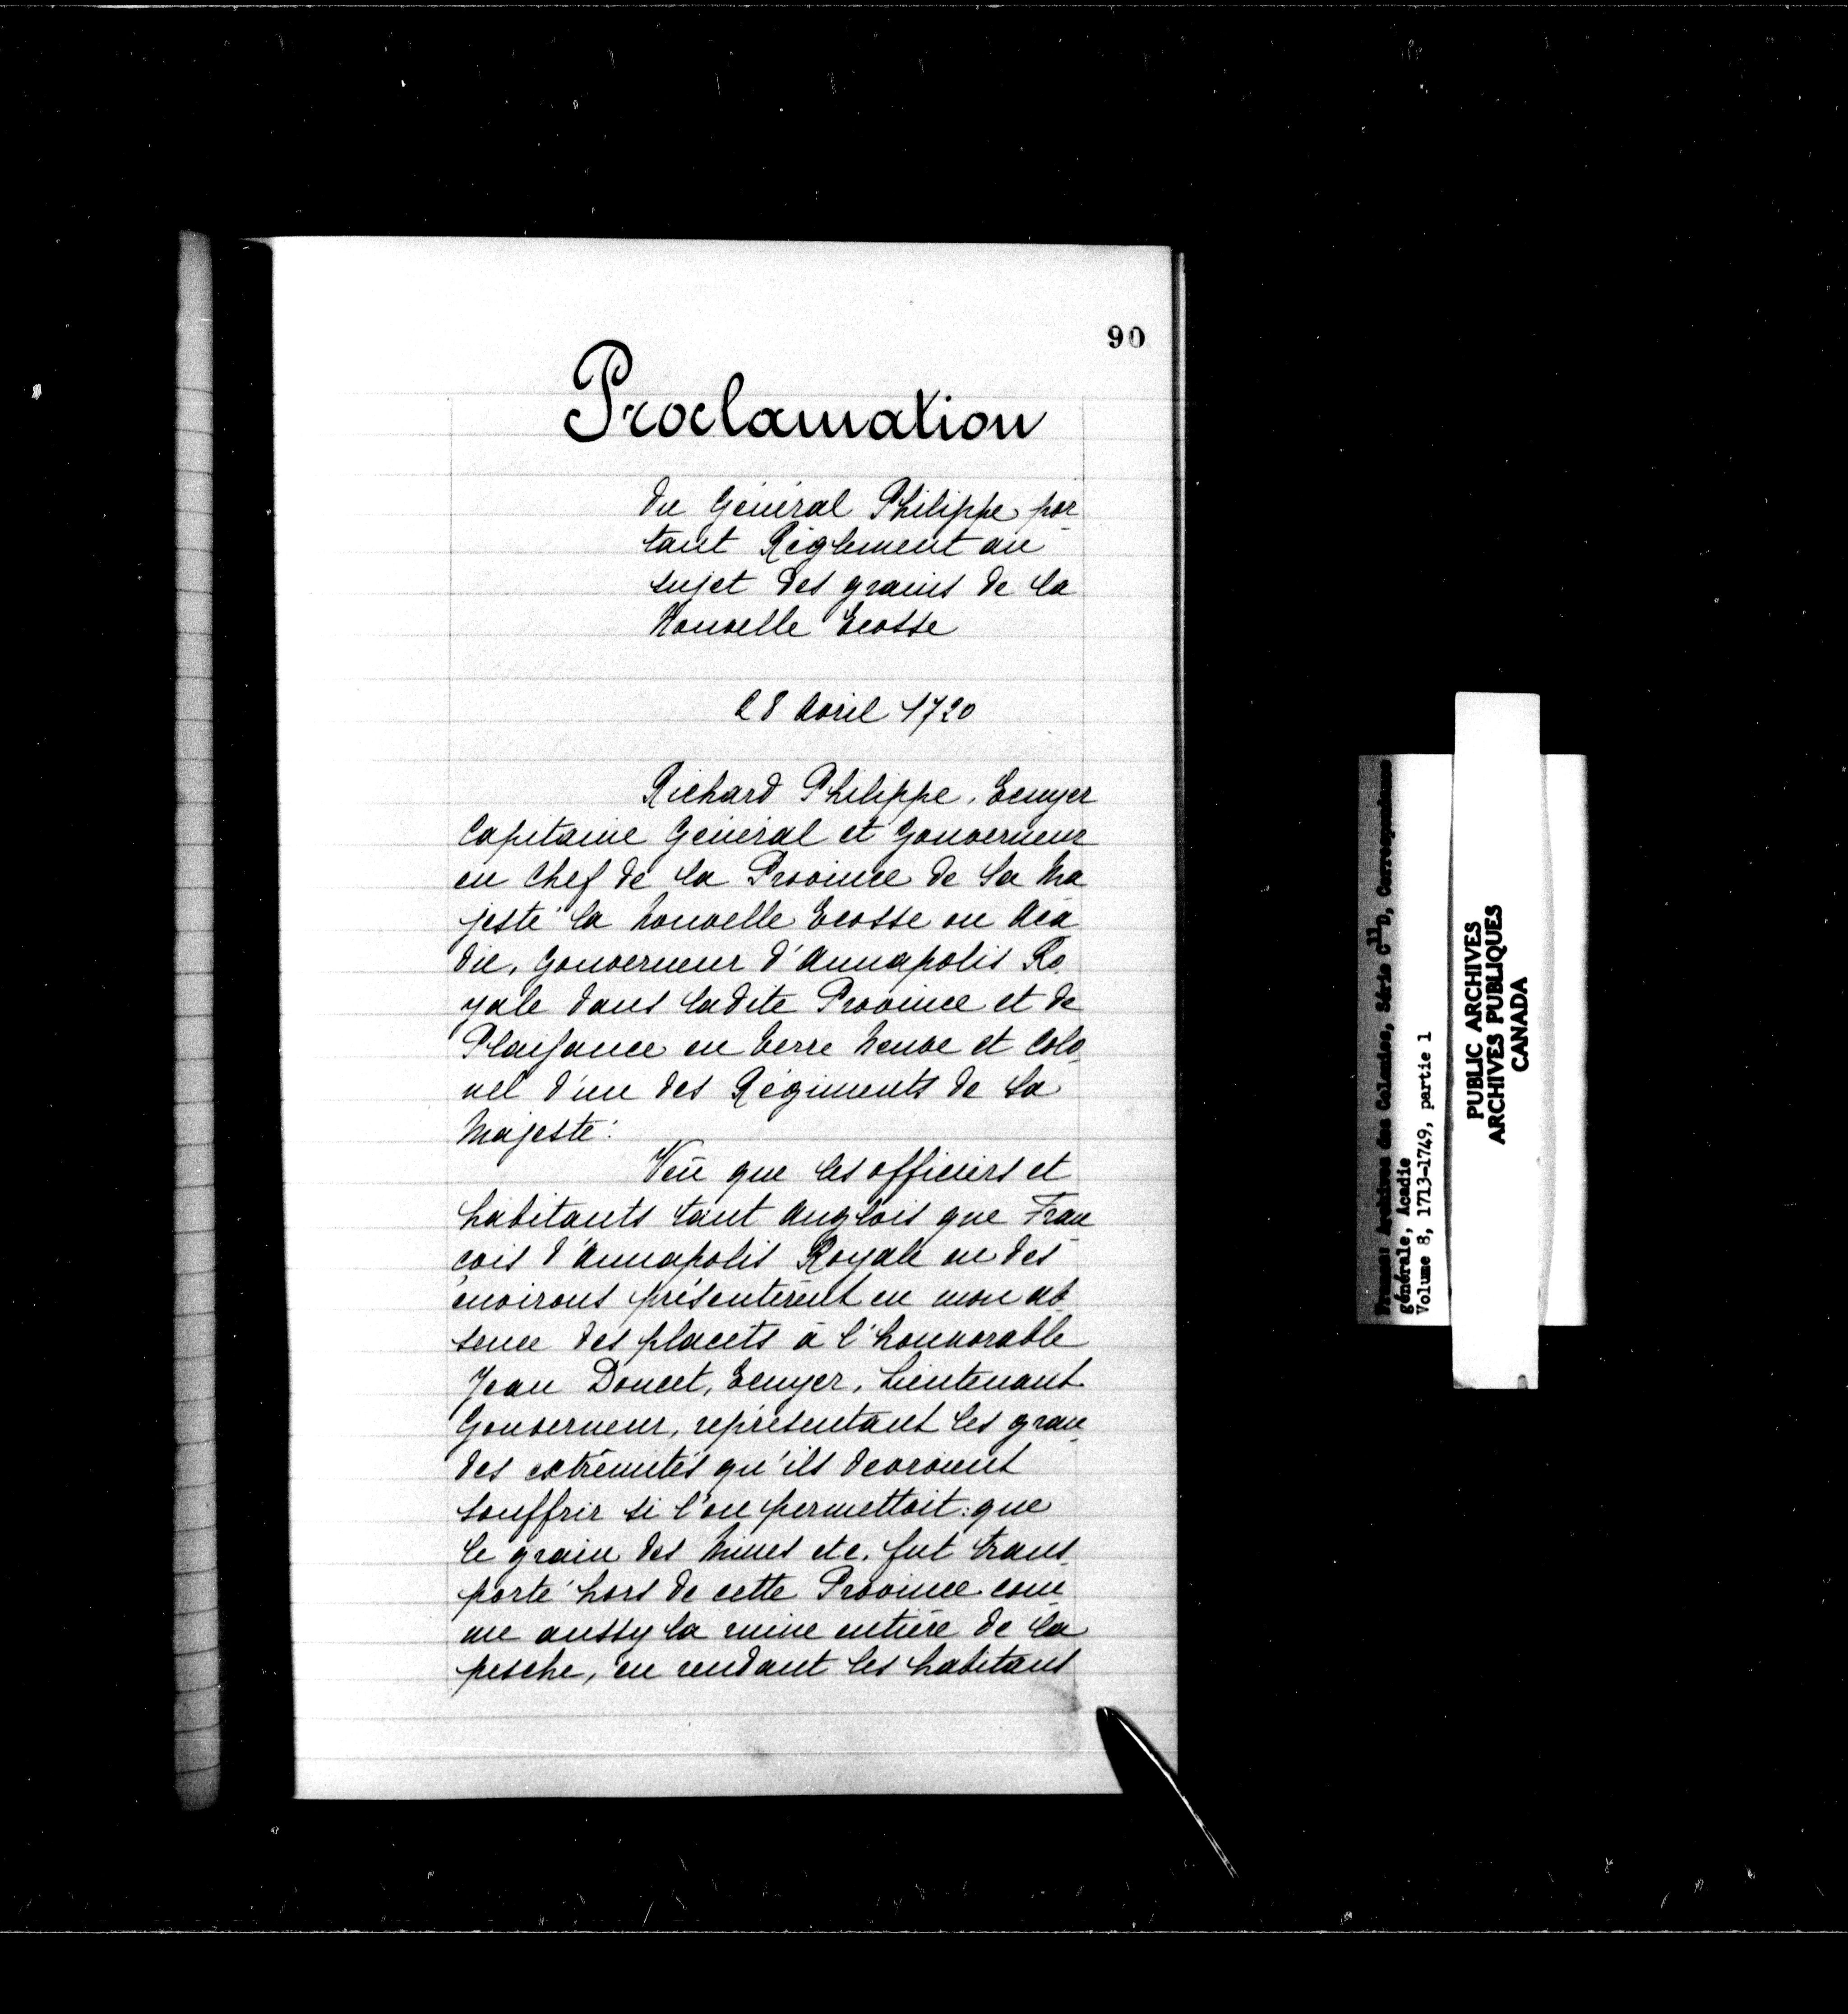 90
Proclamation
du Général Philippe por
tant Règlement au
sujet des grains de la
Nouvelle Ecosse
28 Avril 1720
Richard Philippe, Ecuyer
Capitaine Général et Gouverneur
en Chef de la Province de Sa Ma
jesté la Nouvelle Ecosse ou Aca
die, Gouverneur d'Annapolis Ro
yale dans ladite Province et de
Plaisance en Terre Neuve et Colo
nel d'un des Régiments de Sa
Majesté.
Veü que les officiers et
habitants tant Anglois que Fran
çois d'Annapolis Royale ou des
environs présentèrent en mon ab
sence des placets à l'honnorable
Jean Doucet, Ecuyer, Lieutenant
Gouverneur, représentant les gran
des extrêmités qu'ils devroient
souffrir si l'on permettoit que
le grain des Mines etc. fut trans
porté hors de cette Province com
me aussy la ruine entière de la
pesche, en rendant les habitans
France: Archives des Colonies, Série C11D, Correspondance
générale, Acadie
Volume 8, 1713-1749, partie 1
PUBLIC ARCHIVES
ARCHIVES PUBLIQUES
CANADA